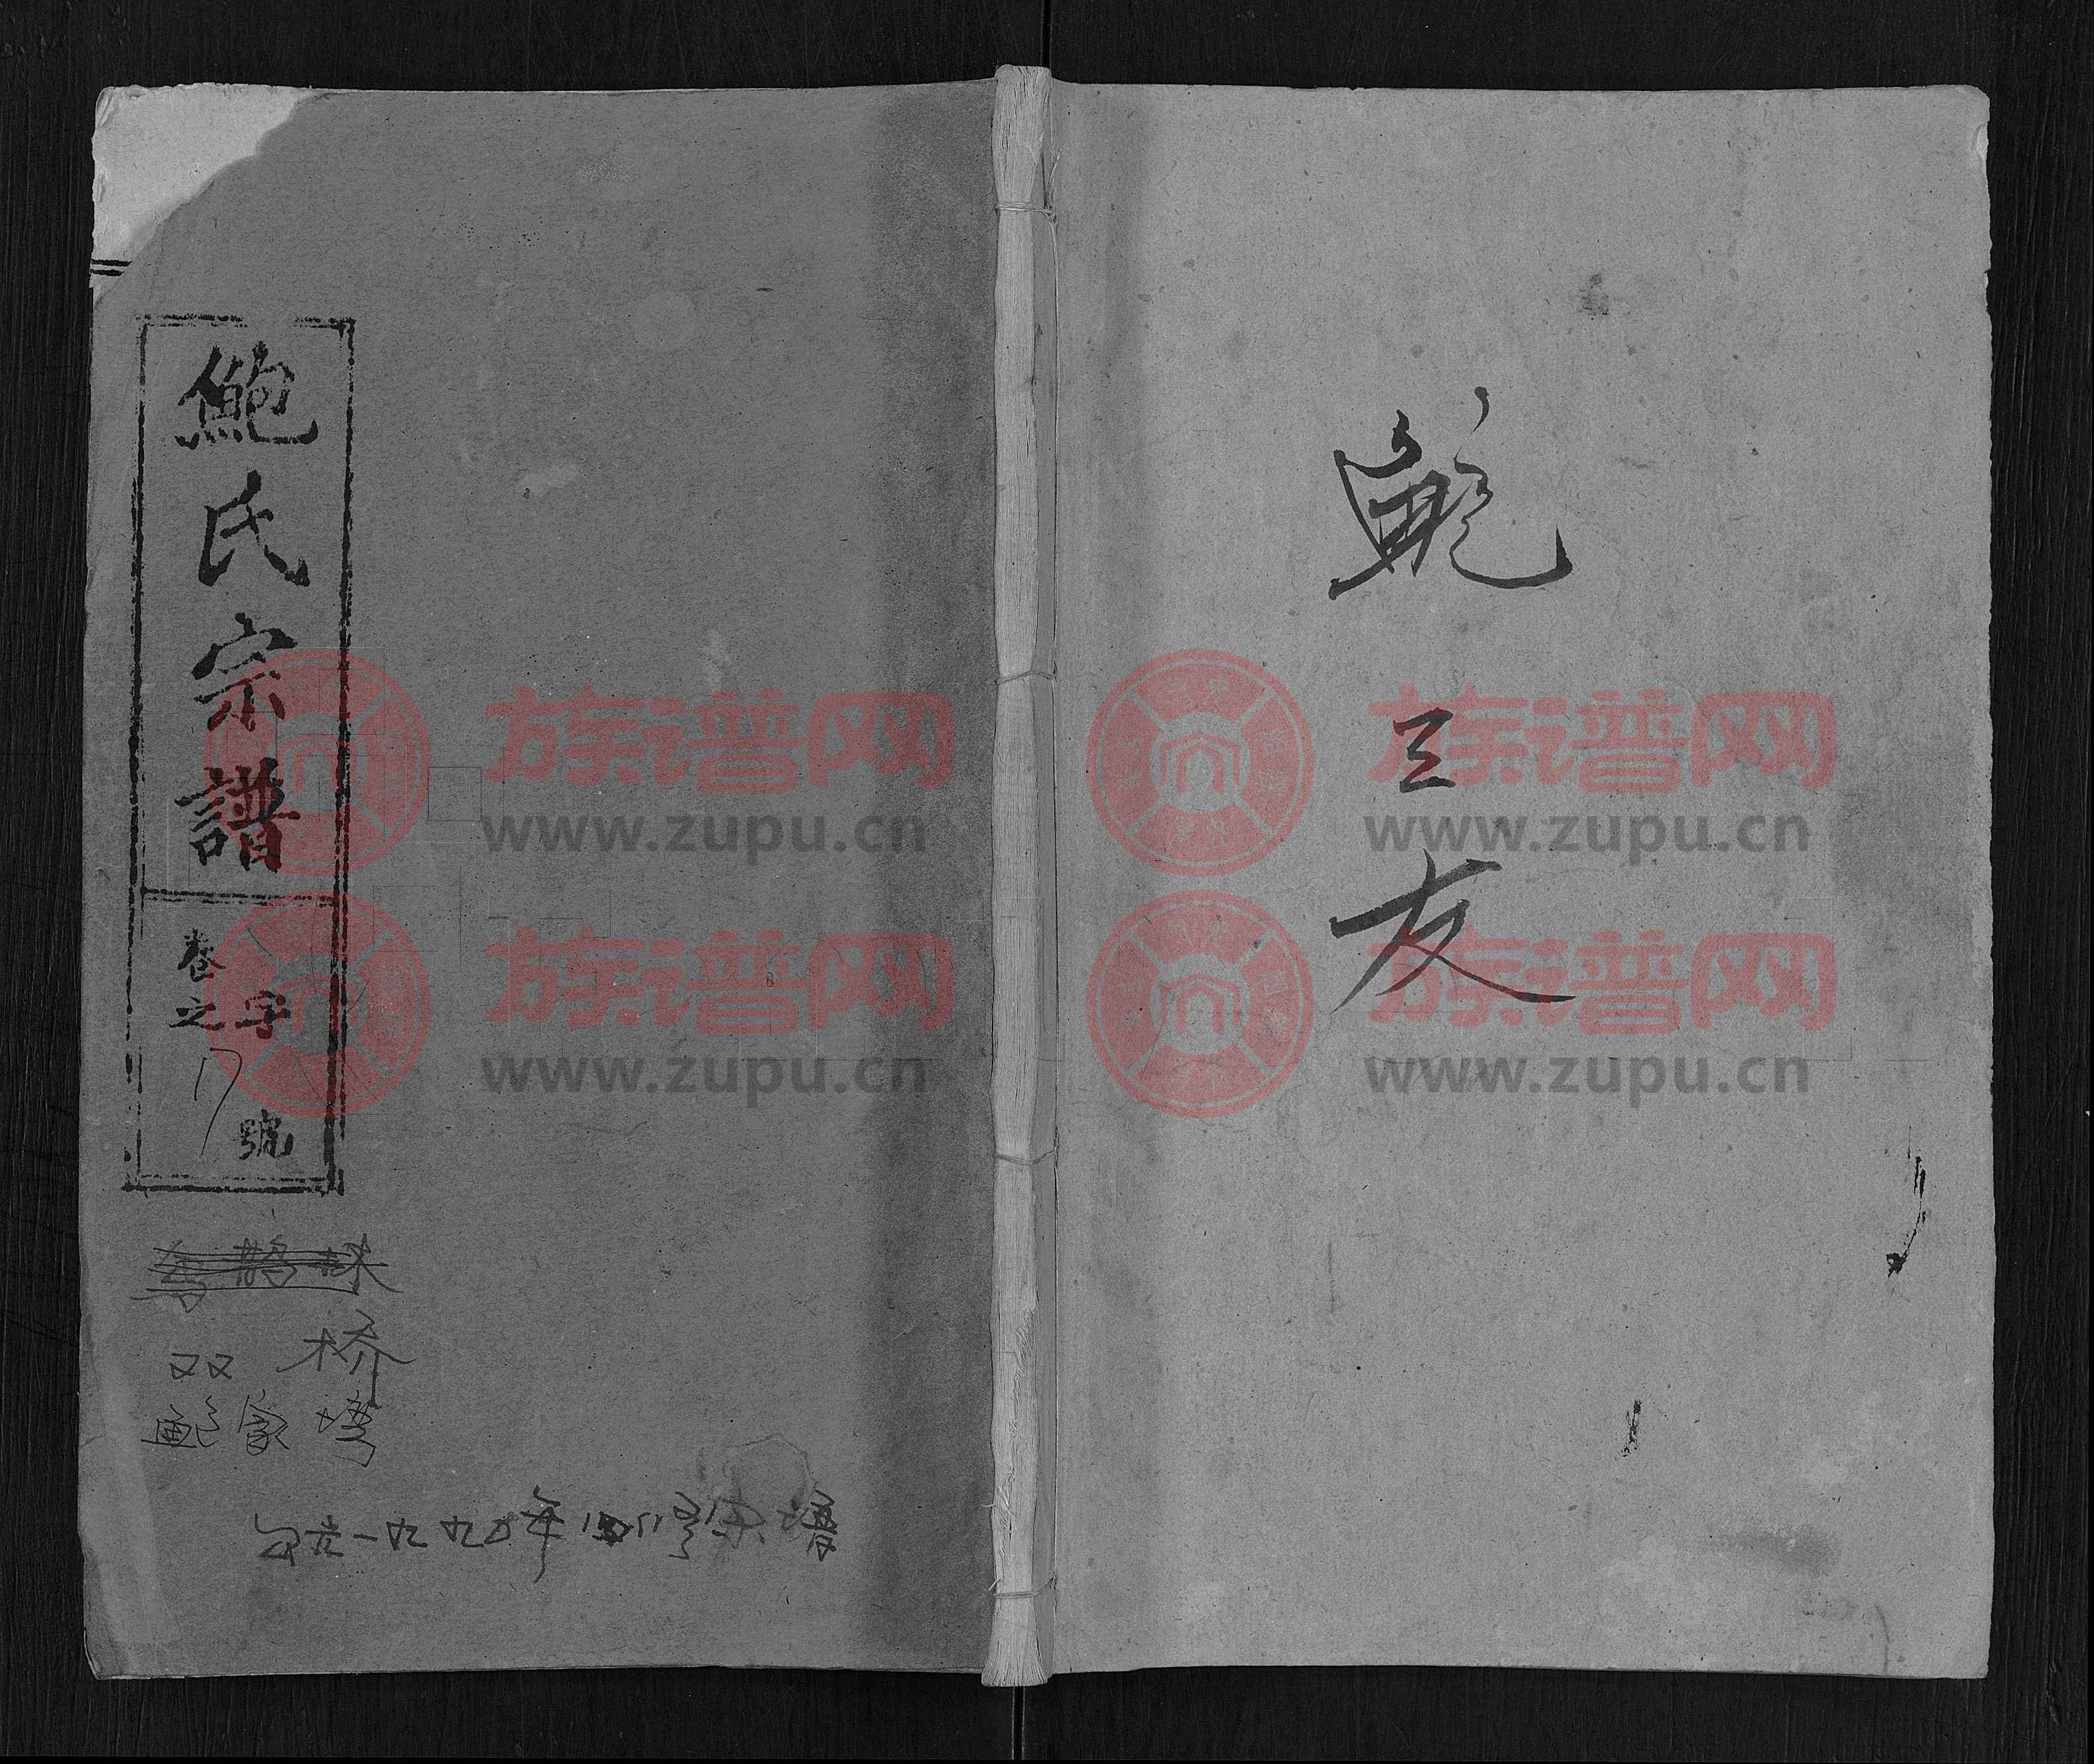 鮑氏宗譜
卷之17
字號
双桥
鲍家塆
一九九五年
宗谱
鲍三友
族谱网
www.zupu.cn
族谱网
www.zupu.cn
族谱网
www.zupu.cn
族谱网
www.zupu.cn